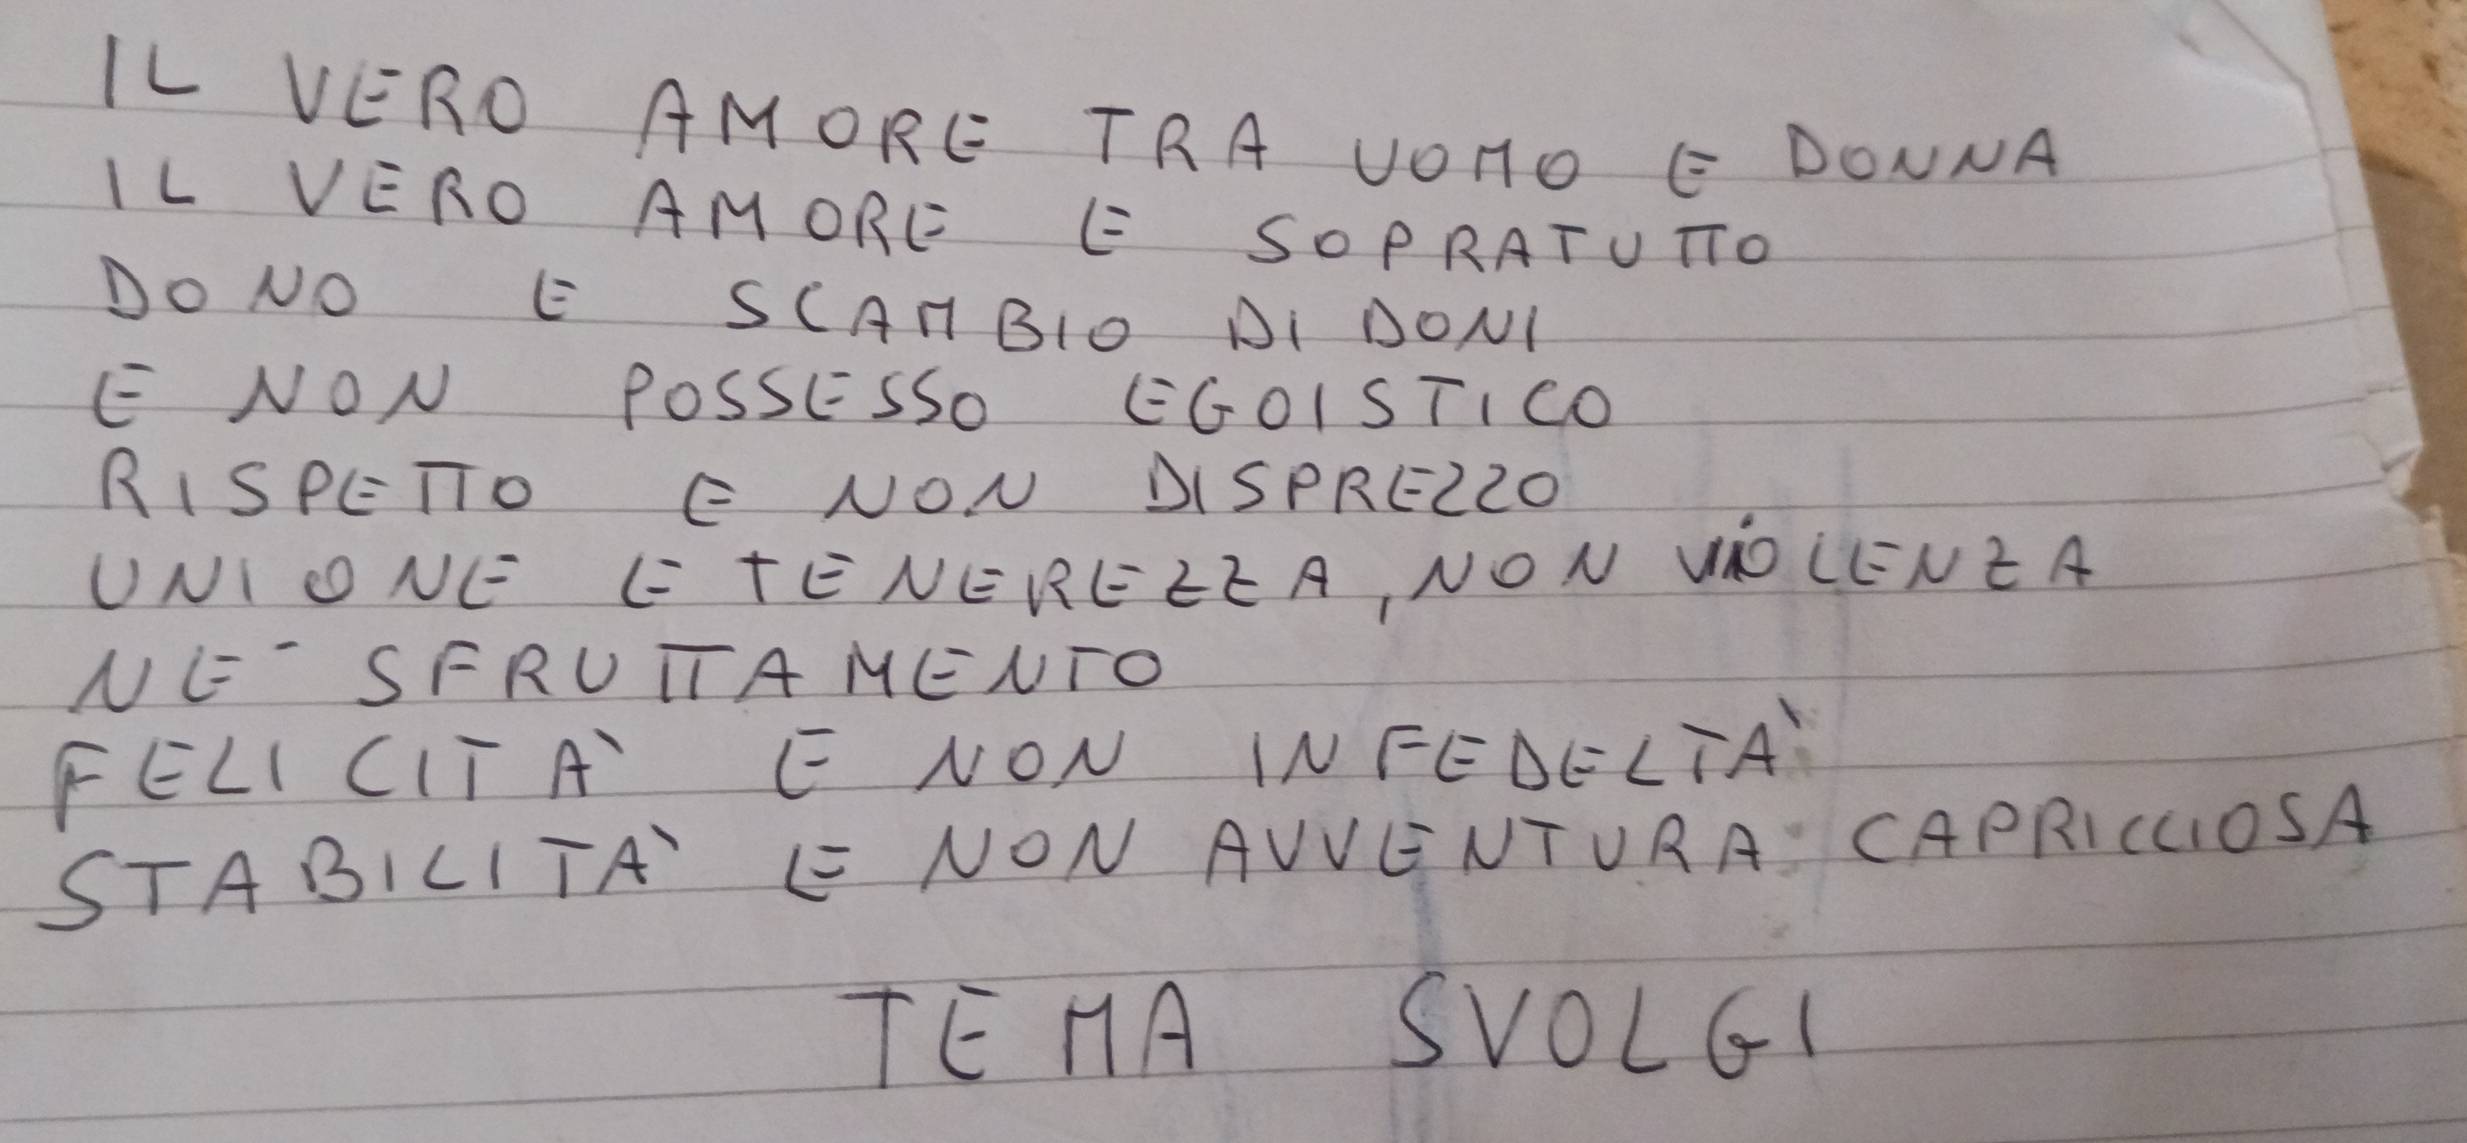 IL VERO AMORE TRA UOMO E DONNA
IL VERO AMORE E SOPRATUTTO
DONO E SCAMBIO DI DONI
E NON POSSESSO EGOISTICO
RISPETTO E NON DISPREZZO
UNIONE E TENEREZZA, NON VIOLENZA
NE- SFRUTTAMENTO
FELICITÀ E NON INFEDELTÀ
STABILITÀ E NON AVVENTURA CAPRICCIOSA
TEMA SVOLGI